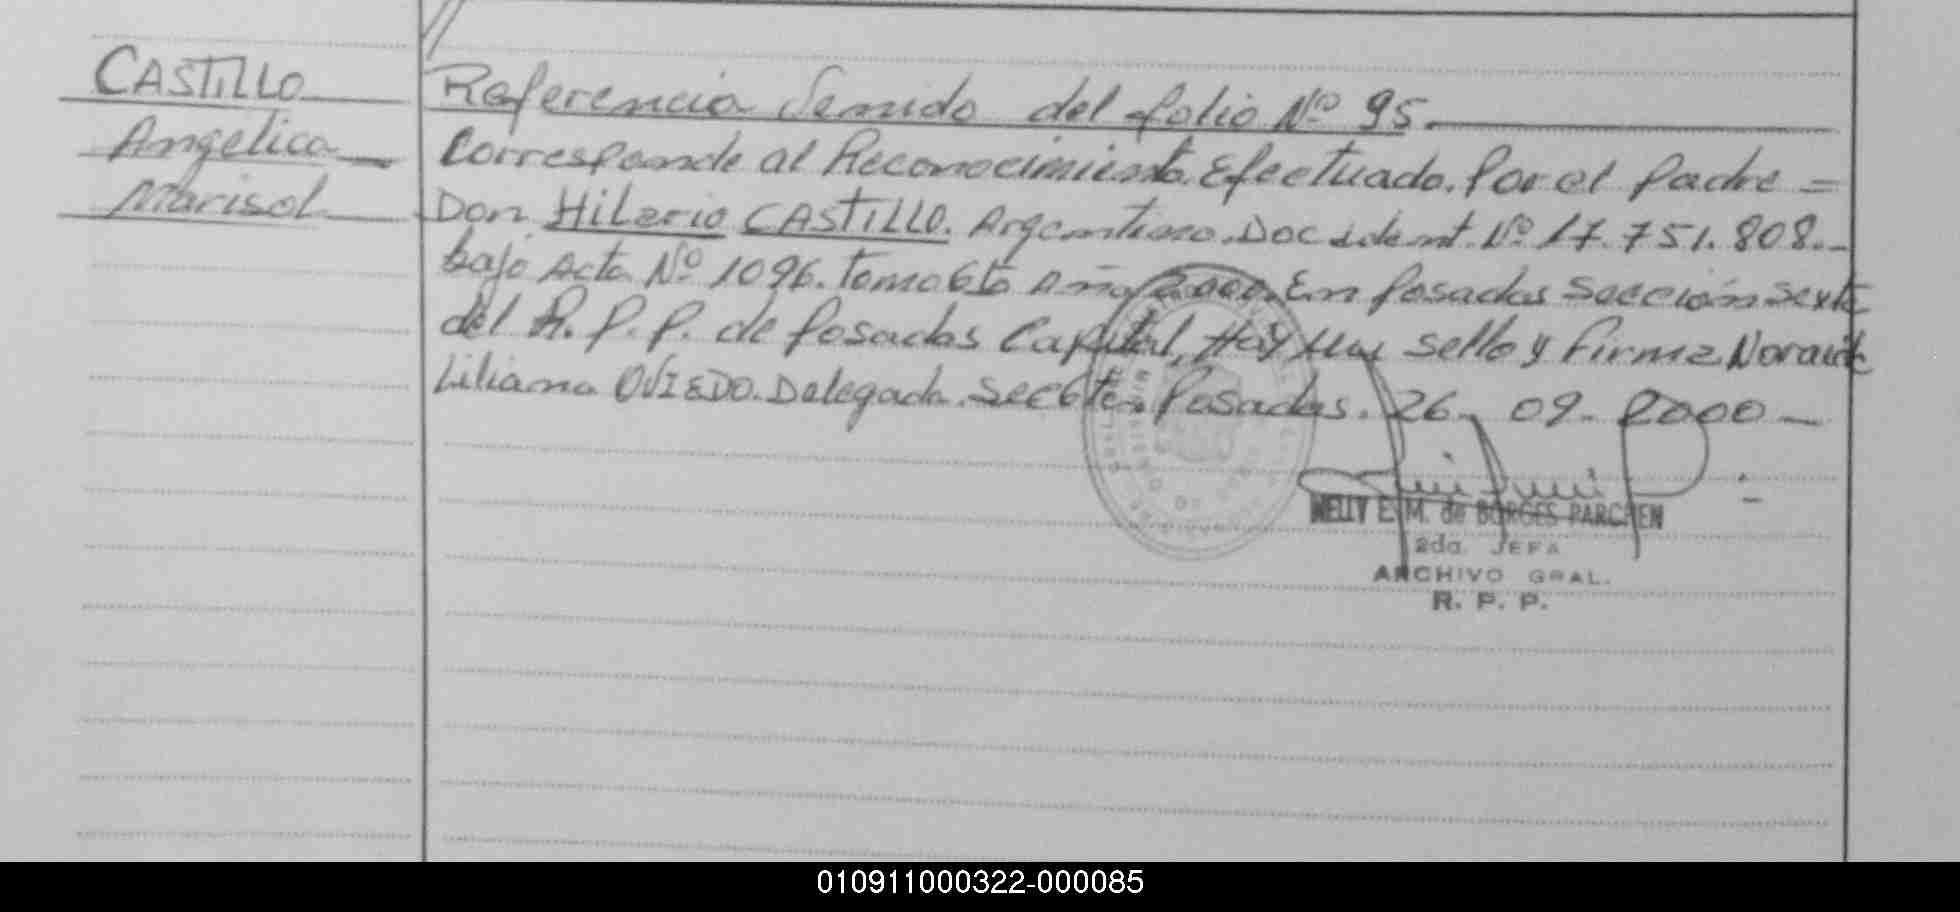 CASTILLO
Angelica
Marisol
Referencia Venida del folio Nº 95.
Corresponde al Reconocimiento. Efectuado. Por el Padre =
Don Hilario CASTILLO. Argentino. Doc ident. Nº 17.751.808.-
bajo Acta Nº 1096. tomo 6to Año 2000. En Posadas Sección Sexta
del R. P. P. de Posadas Capital, Hay un sello y Firma
Liliana OVIEDO. Delegada. Sec 6ta. Posadas. 26. 09. 2000 -
NELLY E. M. de BORGES PARCHEN
2da. JEFA
ARCHIVO GRAL.
R. P. P.
010911000322-000085